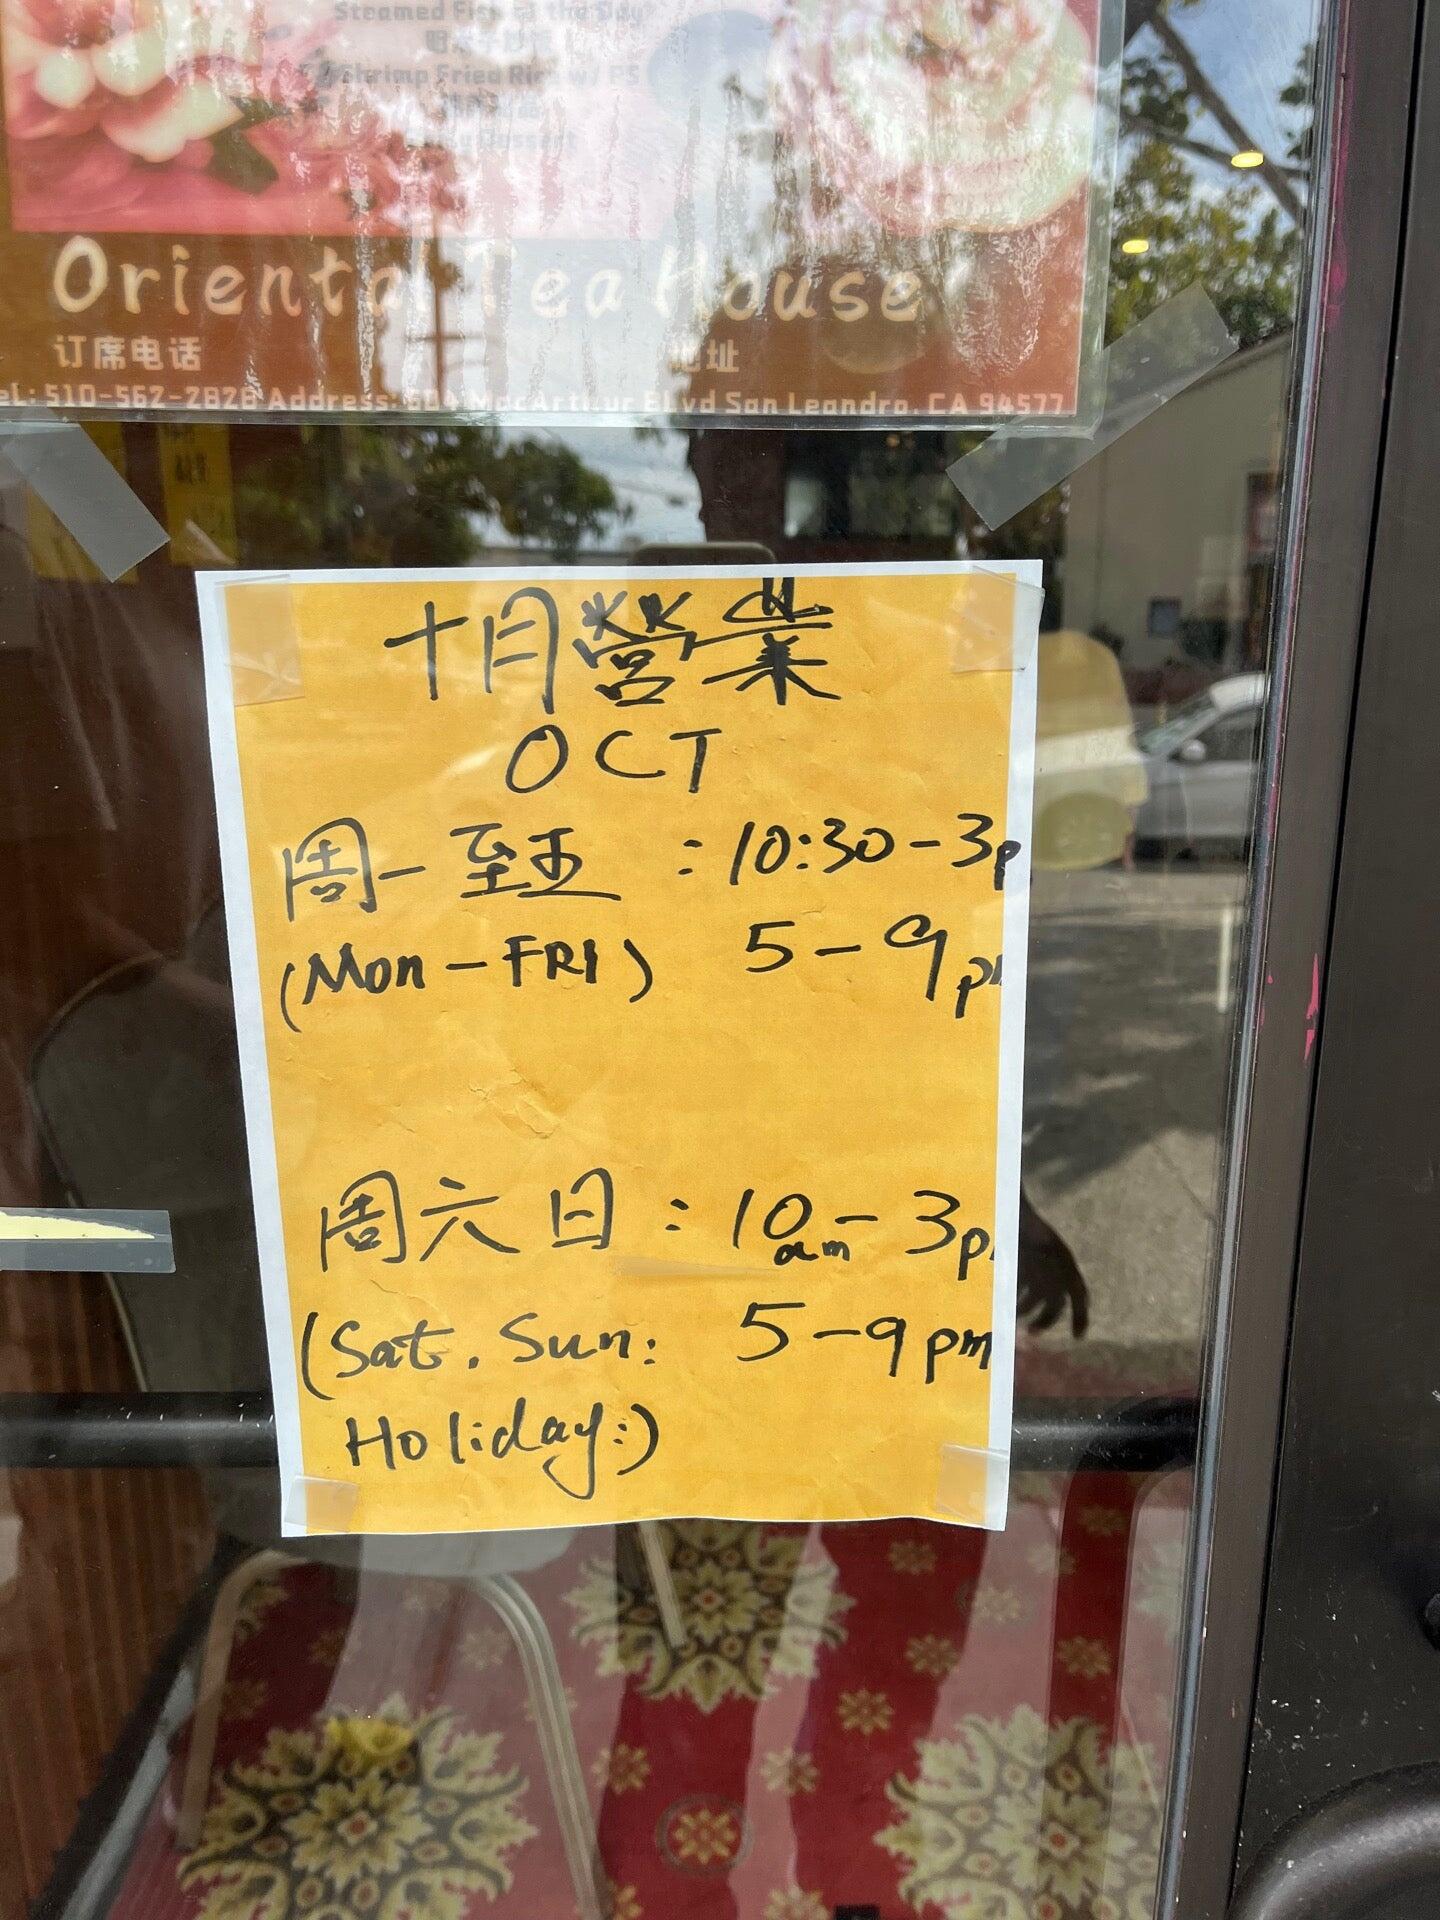 Steamed Fish of the Day
Shrimp Fried Rice w/ PS
Dessert
Oriental Tea House
订席电话 地址
eL: 510-562-2828 Address: 604 MacArthur Blvd San Leandro, CA 94577
十月營業
OCT
周一至五 : 10:30-3p
(Mon-FRI) 5-9p
周六日 : 10am-3p
(Sat. Sun: 5-9pm
Holiday:)